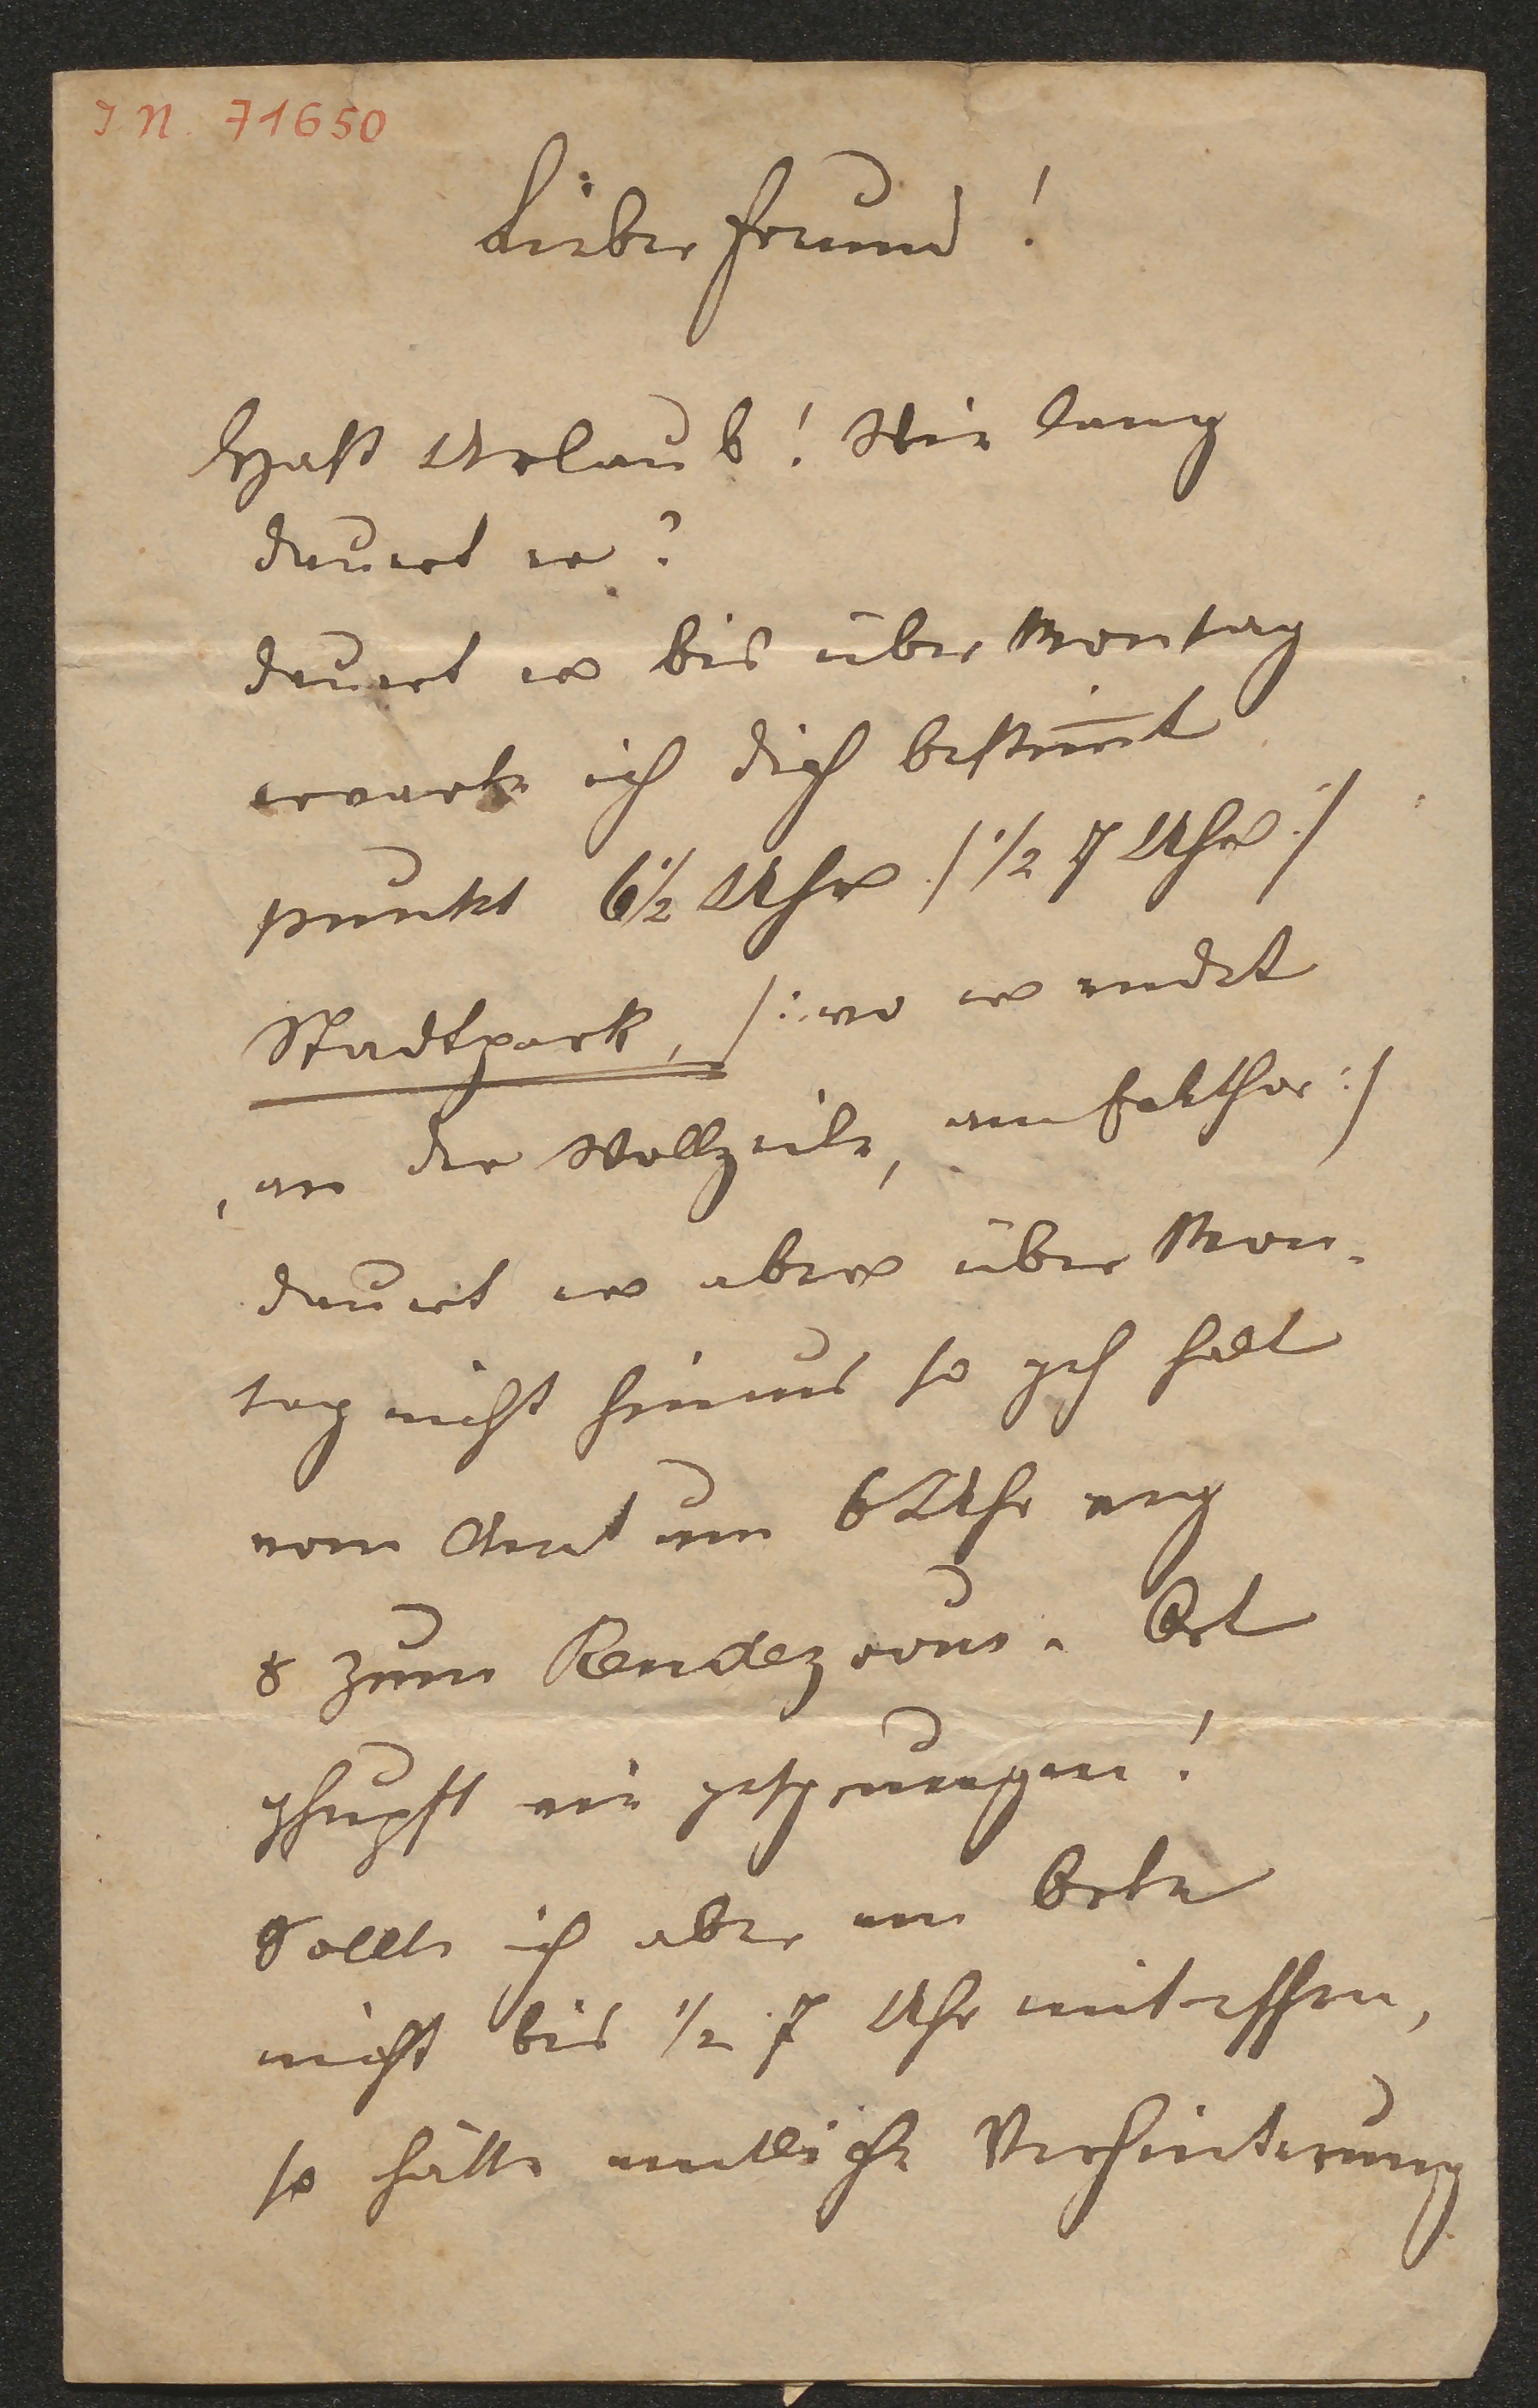 I N. 71650
Lieber Freund!
Hast Urlaub! Wie lang
dauert er?
dauert er bis über Montag
erwarte ich dich bestim̅t
punkt 6½ Uhr /½ 7 Uhr:/
Stadtpark, /: wo er endet
, an der Wollzeile, am Eckthor:/
dauert er aber über Mon-
tag nicht hinaus so geh halt
vom Amt um 6 Uhr weg
& zum Rendezvous-Ort
ghupft wie gesprungen!
Sollte ich aber am Orte
nicht bis ½ 7 Uhr eintreffen,
so hätte amtliche Verhinterung